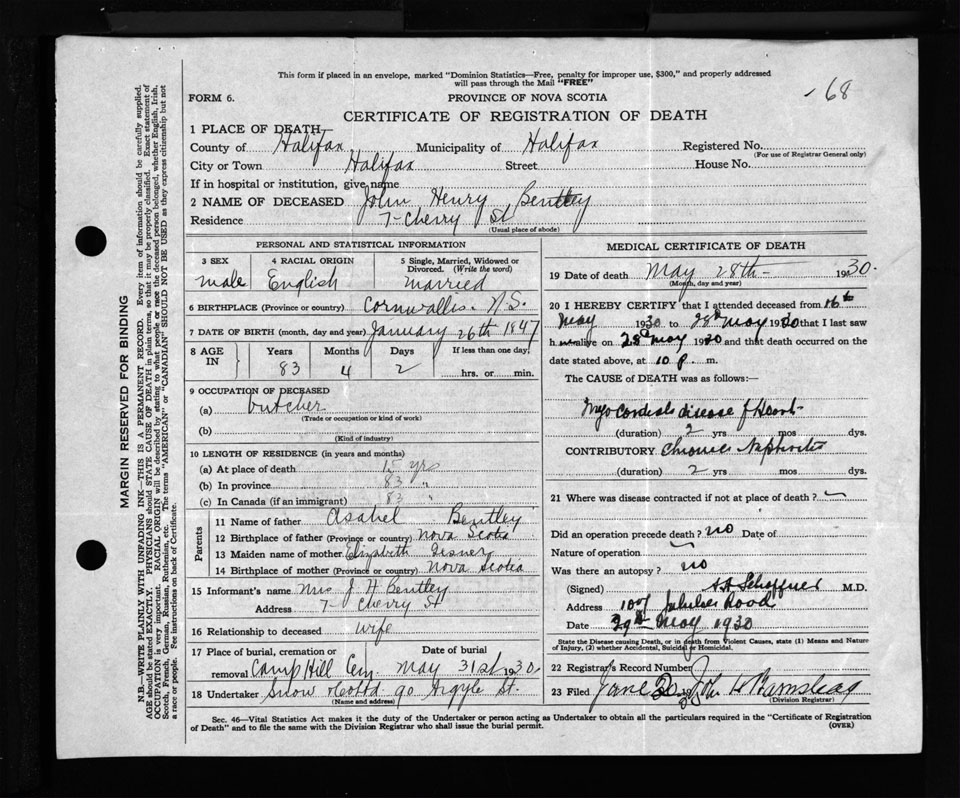 This form if placed in an envelope, marked "Dominion Statistics—Free, penalty for improper use, $300," and properly addressed
will pass through the Mail "FREE"
68
FORM 6.
PROVINCE OF NOVA SCOTIA
CERTIFICATE OF REGISTRATION OF DEATH
1 PLACE OF DEATH
County of Halifax Municipality of Halifax Registered No.
(For use of Registrar General only)
City or Town Halifax Street House No.
If in hospital or institution, give name
2 NAME OF DECEASED John Henry Bentley
Residence 7 Cherry St
(Usual place of abode)
PERSONAL AND STATISTICAL INFORMATION
3 SEX 4 RACIAL ORIGIN 5 Single, Married, Widowed or
Divorced. (Write the word)
male English married
6 BIRTHPLACE (Province or country) Cornwallis. N.S.
7 DATE OF BIRTH (month, day and year) January 26th 1847
8 AGE IN Years Months Days If less than one day,
83 4 2 hrs. or min.
9 OCCUPATION OF DECEASED
(a) butcher
(Trade or occupation or kind of work)
(b)
(Kind of industry)
10 LENGTH OF RESIDENCE (in years and months)
(a) At place of death 15 yrs
(b) In province 83 "
(c) In Canada (if an immigrant) 83 "
Parents
11 Name of father Asahel Bentley
12 Birthplace of father (Province or country) Nova Scotia
13 Maiden name of mother Elizabeth Gesner
14 Birthplace of mother (Province or country) Nova Scotia
15 Informant's name Mrs J H Bentley
Address 7 Cherry St
16 Relationship to deceased wife
17 Place of burial, cremation or Date of burial
removal Camp Hill Cem May 31st 1930
18 Undertaker Snow & Co Ltd 90 Argyle St.
(Name and address)
MEDICAL CERTIFICATE OF DEATH
19 Date of death May 28th 1930.
(Month, day and year)
20 I HEREBY CERTIFY that I attended deceased from 16th
May 1930 to 28th May 1930 that I last saw
him alive on 28th May 1930 and that death occurred on the
date stated above, at 10 p. m.
The CAUSE of DEATH was as follows:
Myocardial disease of Heart
(duration) 2 yrs mos dys.
CONTRIBUTORY Chronic Nephritis
(duration) 2 yrs mos dys.
21 Where was disease contracted if not at place of death?
Did an operation precede death? no Date of
Nature of operation
Was there an autopsy? no
(Signed) M.D.
Address Road
Date 29th May 1930
State the Disease causing Death, or in death from Violent Causes, state (1) Means and Nature
of Injury, (2) whether Accidental, Suicidal or Homicidal.
22 Registrar's Record Number
23 Filed June John
(Division Registrar)
Sec. 46—Vital Statistics Act makes it the duty of the Undertaker or person acting as Undertaker to obtain all the particulars required in the "Certificate of Registration
of Death" and to file the same with the Division Registrar who shall issue the burial permit.
(OVER)
MARGIN RESERVED FOR BINDING
N.B.—WRITE PLAINLY WITH UNFADING INK—THIS IS A PERMANENT RECORD. Every item of information should be carefully supplied.
AGE should be stated EXACTLY. PHYSICIANS should STATE CAUSE OF DEATH in plain terms, so that it may be properly classified. Exact statement of
OCCUPATION is very important. RACIAL ORIGIN will be described by stating to what people or race the deceased person belonged, whether English, Irish,
Scotch, French, German, Russian, Ruthenian, etc. The terms "AMERICAN" or "CANADIAN" SHOULD NOT BE USED as they express citizenship but not
a race or people. See instructions on back of Certificate.